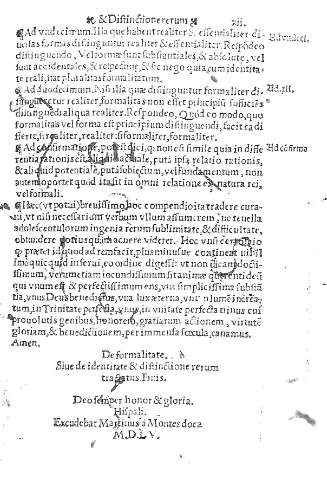 & Distinctione rerum xii.
¶ Ad vndecimum. Illa quæ habent realiter & essentialiter di
uersas formas distinguntur realiter & essentialiter. Respõdeo
distinguendo, Vel formæ sunt substantiales, & absolutæ, vel
sunt accidentales, & respectiuæ, & sic nego quia, cum identita-
te reali, stat pluralitas formalitatum.
¶ Ad duodecimum. Nisi illa quæ distinguntur formaliter di-
stinguerẽtur realiter, formalitas non esset principiũ sufficiẽs
distinguẽdi aliqua realiter. Respondeo, Quod eo modo, quo
formalitas vel forma est principium distinguendi, facit ea di
fferre, si realiter, realiter: si formaliter, formaliter.
¶ Ad confirmationẽ, potest dici, quod non est simile
rentia rationis est aliquid actuale, puta ipsa relatio rationis,
& aliquid potentiale, puta subiectum, vel fundamentum, non
autem oportet quod ita sit in omni relatione ex natura rei,
vel formali.
¶ Hæc (vt potui) breuissimo, hoc compendio ita tradere cura-
ui, vt nisi necessarium verbum vllum assumerem, ne tenella
adolescentulorum ingenia rerum sublimitate, & difficultate,
obtundere potius quam acuere viderer. Hoc vnũ
præter id quod ad rem facit, plus minusue contineat nihil
inseri, eo ordine digessi: vt non
ssimum, verum etiam iocondissimum sit animæ querenti deũ
qui vnum est & perfectissimum ens, vna simplicissima substã
tia, vnus Deus benedictus, vna lux æterna, vnũ lumẽ increa-
tum, in Trinitate perfecta, vnus, in vnitate perfecta trinus cui
prouolutis genibus, honorem, gratiarum actionem, virtutẽ
gloriam, & benedictionem, per immensa sæcula, canamus.
Amen.
De formalitate.
Siue de identitate & distinctione rerum
tractatus. Finis.
Deo semper honor & gloria.
Hispali.
Excudebat Martinus à Montesdoca
M.D.LV.
Ad vndeci.
Ad.xii.
Ad cõfirma